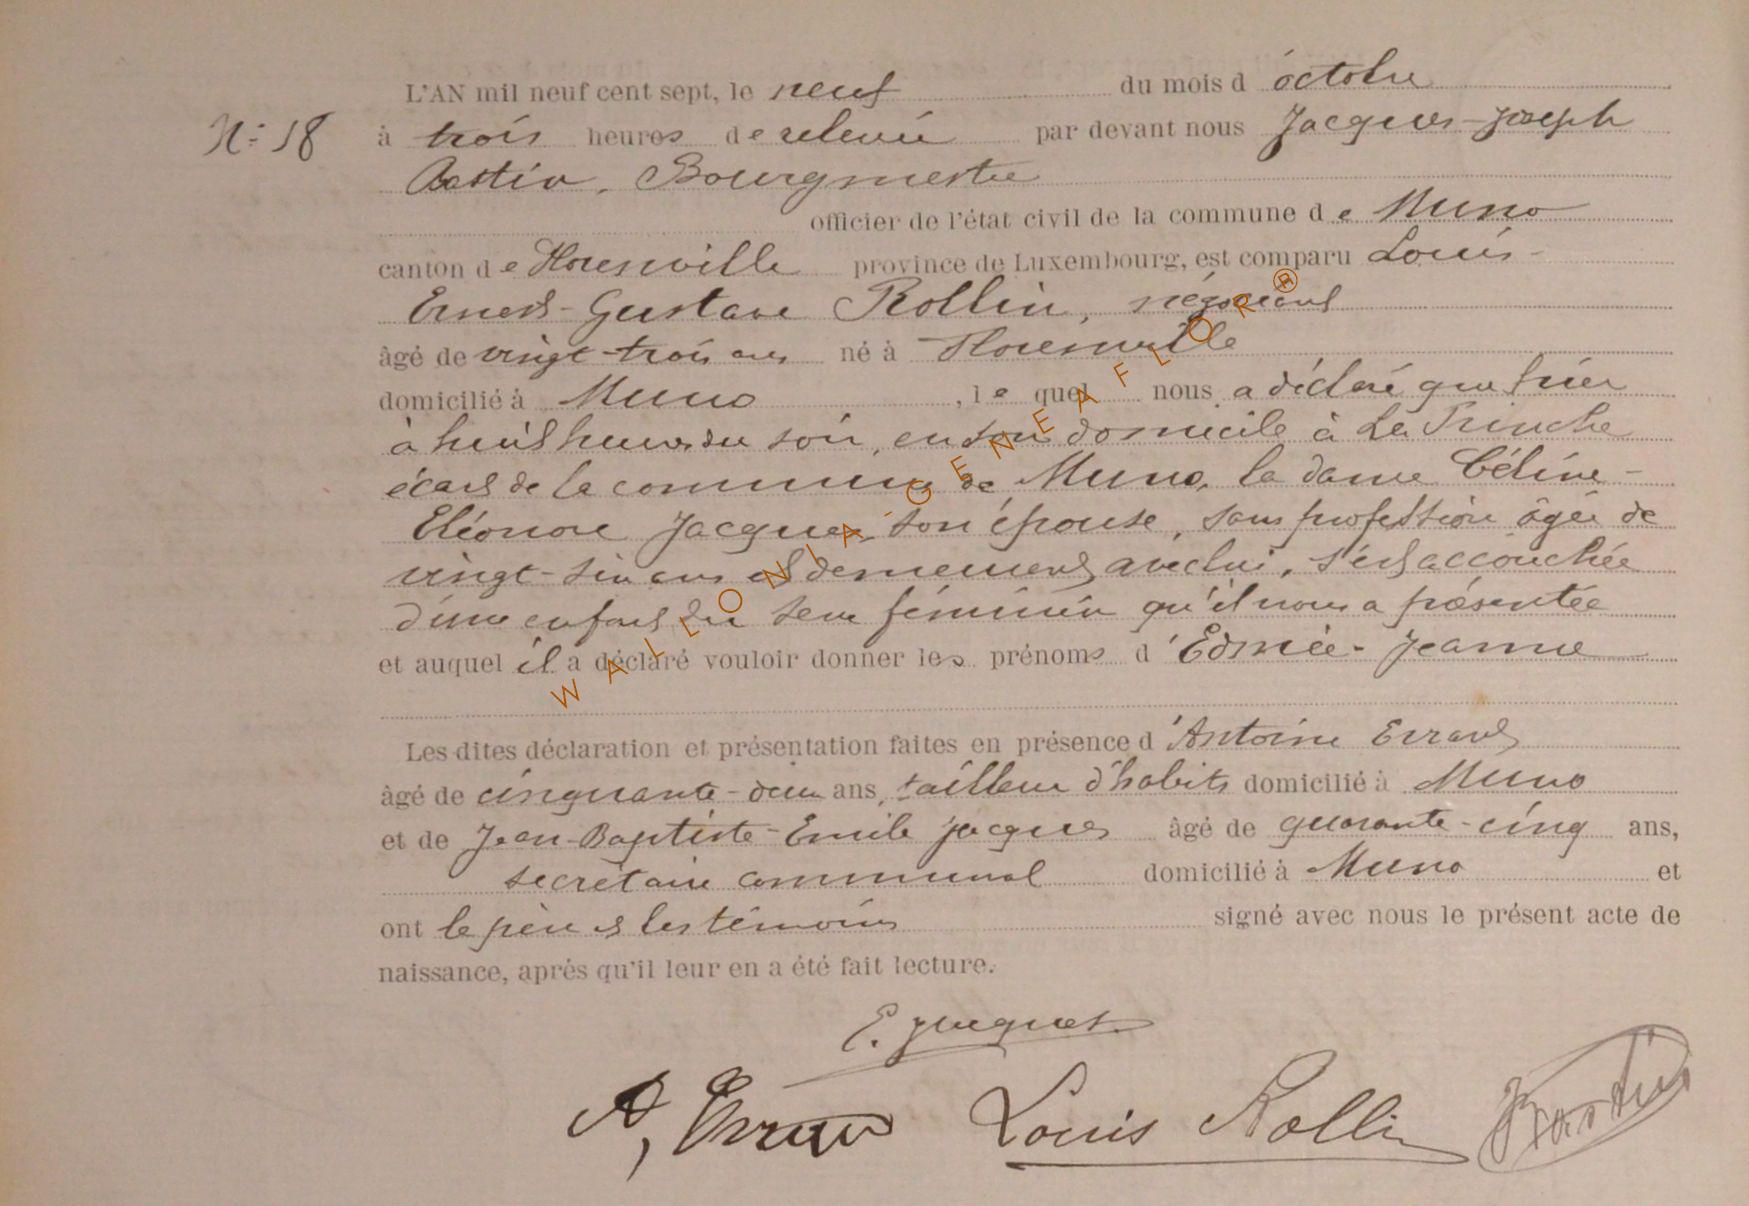 L'AN mil neuf cent sept, le neuf du mois d octobre
N° 18 à trois heures de relevée par devant nous Jacques-Joseph
Bastin, Bourgmestre
officier de l'état civil de la commune de Muno
canton de Florenville province de Luxembourg, est comparu Louis-
Ernest-Gustave Rollin, négociant
âgé de vingt-trois ans né à Florenville
domicilié à Muno, le quel nous a déclaré que hier
à huit heures du soir, en son domicile à La
écart de la commune de Muno, la dame Céline-
Eléonore Jacques, son épouse, sans profession âgée de
vingt-six ans et demeurant avec lui, s'est accouchée
d'une enfant du sexe féminin qu'il nous a présentée
et auquel il a déclaré vouloir donner les prénoms d'Edmée-Jeanne
Les dites déclaration et présentation faites en présence d'Antoine Errard
âgé de cinquante-deux ans, tailleur d'habits domicilié à Muno
et de Jean-Baptiste-Emile Jacques âgé de quarante-cinq ans,
secrétaire communal domicilié à Muno et
ont le père et les témoins signé avec nous le présent acte de
naissance, après qu'il leur en a été fait lecture.
E. Jacques
A, Errard Louis Rollin J Bastin
WALLONIA GENEAFLOR®